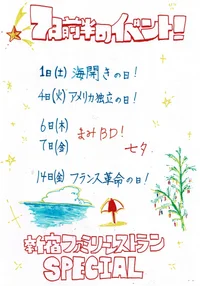 7月前半のイベント!
1日(土) 海開きの日!
4日(火) アメリカ独立の日!
6日(木) まみBD!
7日(金) 七夕
14日(金) フランス革命の日!
新宿ファミリーレストラン
SPECIAL